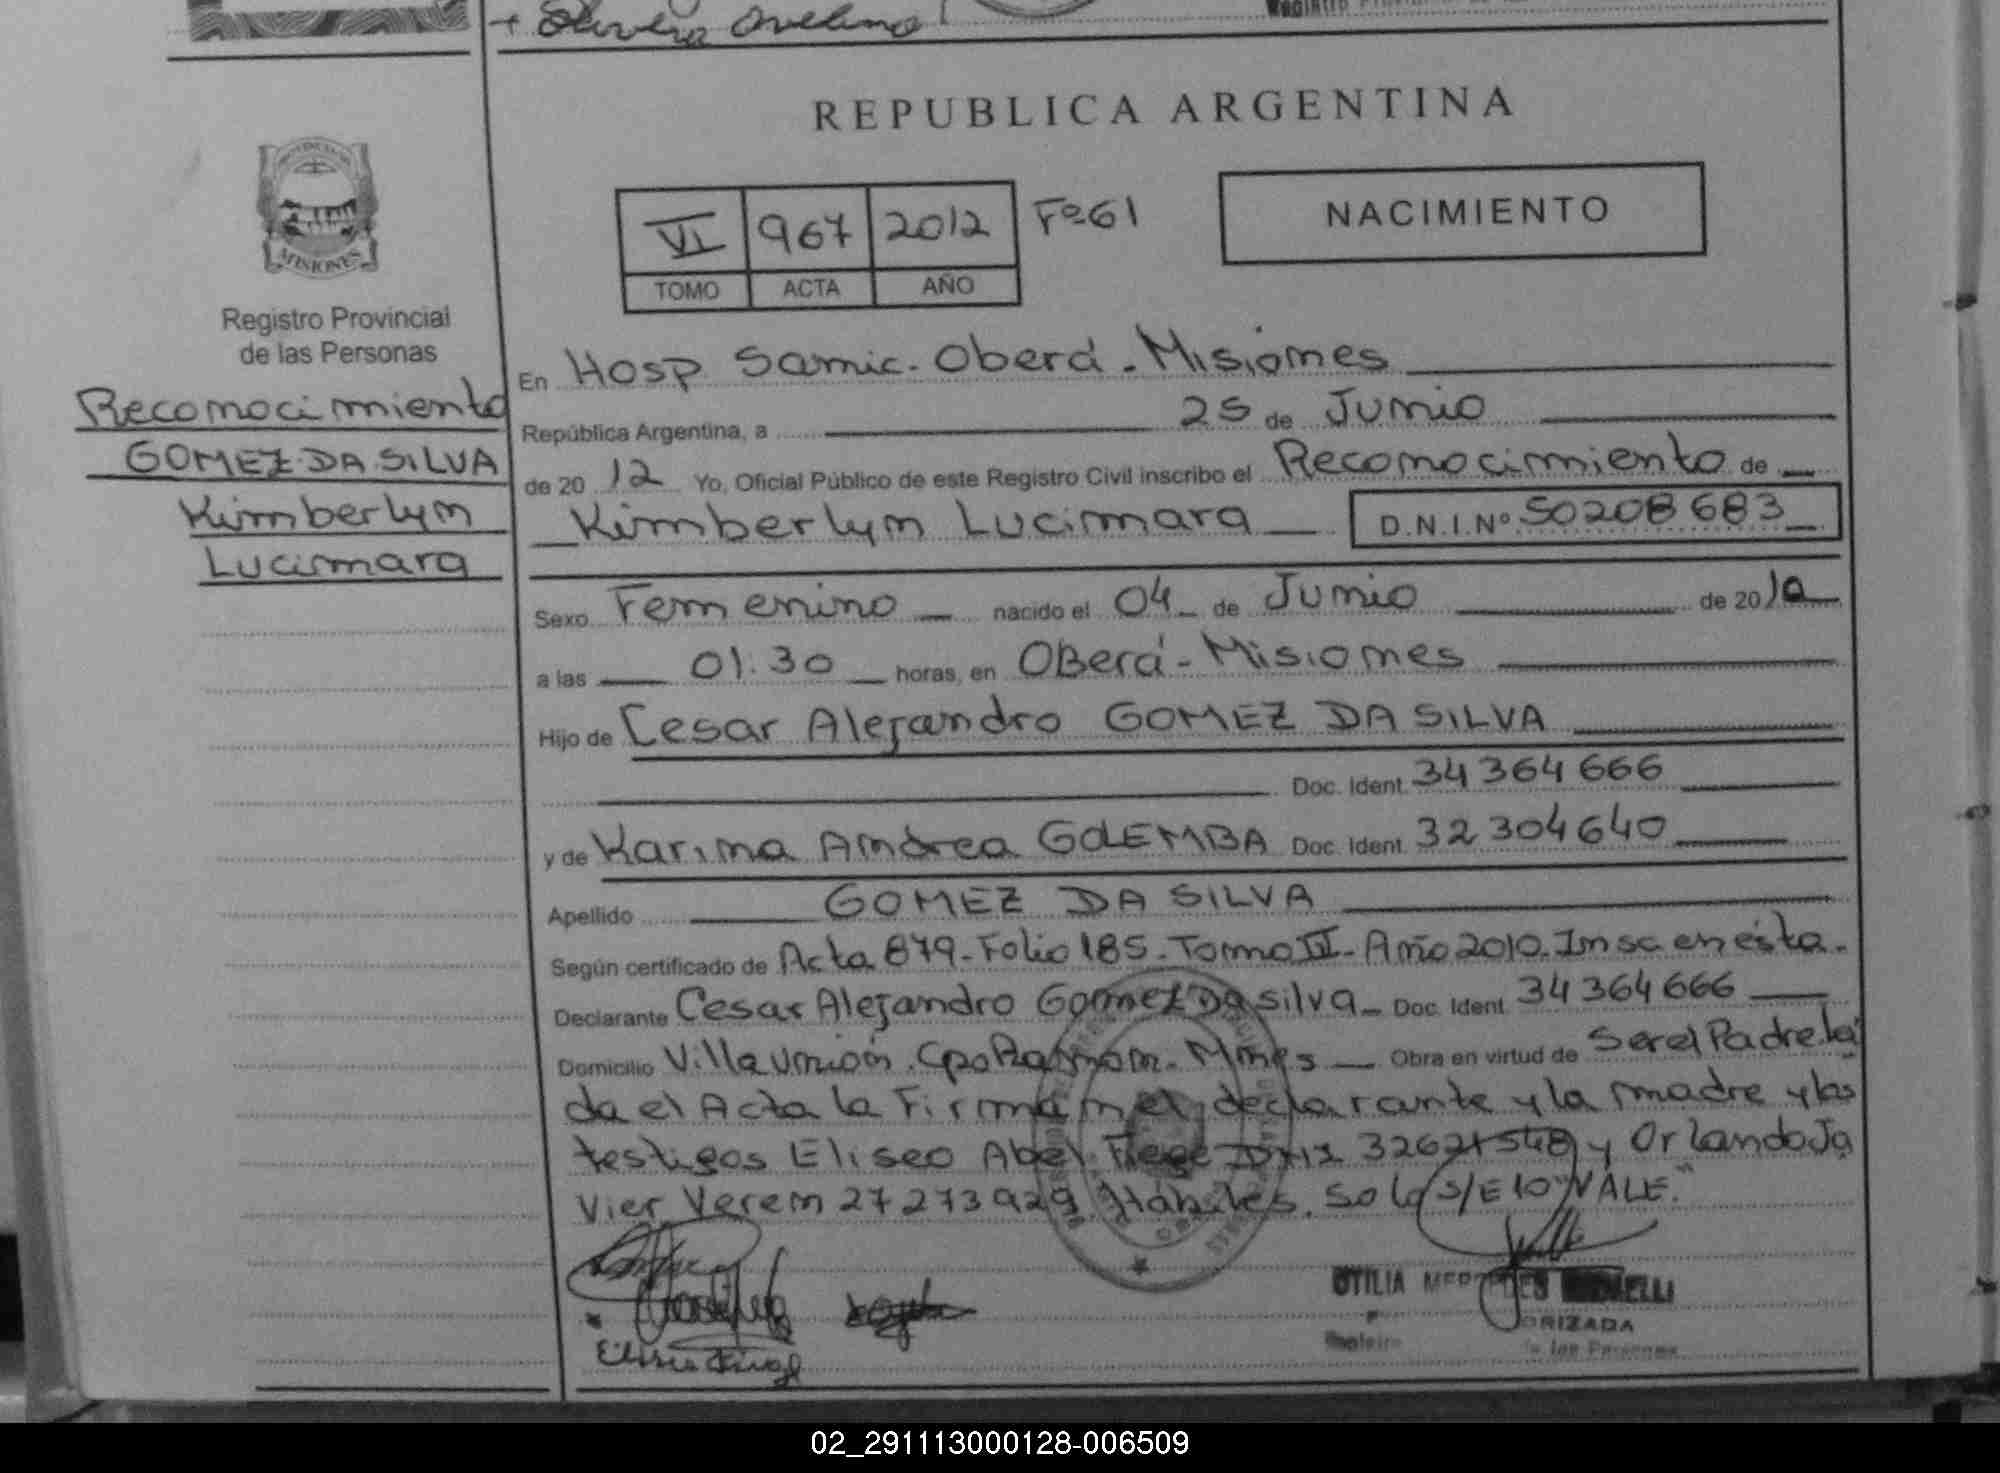 + Olivera Avelino
REPUBLICA ARGENTINA
PROVINCIA DE
MISIONES
VI 967 2012 Fº61
NACIMIENTO
TOMO ACTA AÑO
Registro Provincial
de las Personas
Reconocimiento
GOMEZ DA SILVA
Kimberlyn
Lucimara
En Hosp Samic. Oberá. Misiones
República Argentina, a 25 de Junio
de 2012 Yo, Oficial Público de este Registro Civil inscribo el Reconocimiento de
Kimberlyn Lucimara D.N.I.Nº 50208683
Sexo Femenino nacido el 04 de Junio de 2010
a las 01:30 horas, en Oberá - Misiones
Hijo de Cesar Alejandro GOMEZ DA SILVA
Doc. Ident. 34364666
y de Karina Andrea GOLEMBA Doc. Ident. 32304640
Apellido GOMEZ DA SILVA
Según certificado de Acta 879-Folio 185-Tomo IV-Año 2010. Insc en ésta.
Declarante Cesar Alejandro Gomez Da silva Doc. Ident. 34364666
Domicilio Villa Unión. Cpo Ramon. Mnes Obra en virtud de Ser el Padre. leí
da el Acta la Firman el declarante y la madre y los
testigos Eliseo Abel DNI 32621548 y Orlando Ja
Vier Veren 27273929 Hábiles. So la S/E 10 "VALE."
OTILIA
ORIZADA
de las Personas
02_291113000128-006509